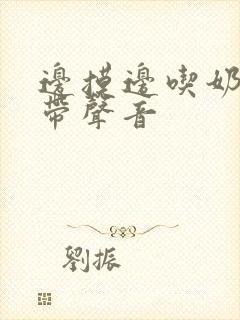 邊摸邊喫奶
帶聲音
劉振